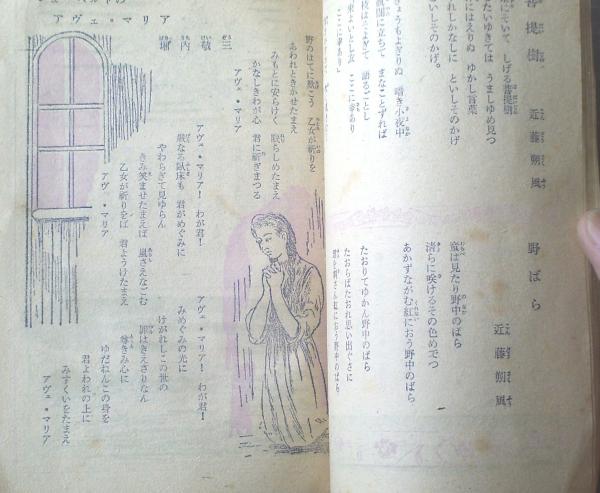 菩提樹
近藤朔風
しげる菩提樹
たいゆきては うまし夢見つ
にはえりぬ ゆかし言葉
れしかなしに といしそのかげ
といしそのかげ。
きょうもよぎりぬ 暗き小夜中
真闇に立ちて まなことずれば
枝はそよぎて 語るごとし
来よいとし友 ここに幸あり
ここに幸あり
野ばら
近藤朔風
童は見たり野中のばら
清らに咲けるその色めでつ
あかずながむ紅におう野中のばら
たおりてゆかん野中のばら
たおらばたおれ思い出ぐさに
君を刺さん紅におう野中のばら
アヴェ・マリア
堀内敬三
野のはてに歎こう 乙女が祈りを
あわれときかせたまえ
みもとに安らけく 憩らしめたまえ
かなしきわが心 君に祈ぎまつる
アヴェ・マリア
アヴェ・マリア! わが君!
厳なる臥床も 君がめぐみに
やわらぎて見ゆらん
きみ笑ませたまえば 嵐さえなごむ
乙女が祈りをば 君ようけたまえ
アヴェ・マリア
アヴェ・マリア! わが君!
みめぐみの光に
けがれしこの世の
罪はきえさりなん
尊きみ心に
ゆだねんこの身を
君よわれの上に
みすくいをたまえ
アヴェ・マリア